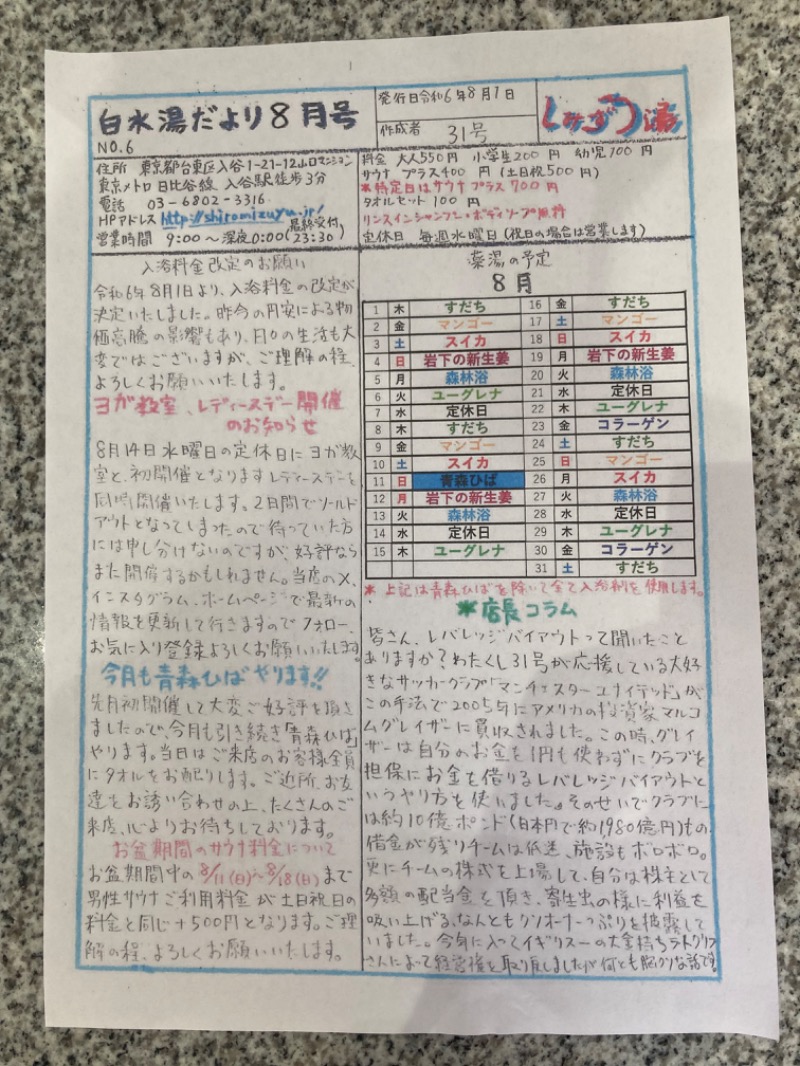 白水湯だより8月号
NO.6
発行日令和6年8月1日
作成者 31号
しみづ湯
住所 東京都台東区入谷1-21-12山口マンション
東京メトロ日比谷線 入谷駅徒歩3分
電話 03-6802-3316
HPアドレス http://shiromizuyu.jp/
営業時間 9:00〜深夜0:00(最終受付23:30)
料金 大人550円 小学生200円 幼児100円
サウナ プラス400円 (土日祝500円)
*特定日はサウナプラス700円
タオルセット100円
リンスインシャンプー・ボディソープ無料
定休日 毎週水曜日(祝日の場合は営業します)
入浴料金改定のお願い
令和6年8月1日より、入浴料金の改定が
決定いたしました。昨今の円安による物
価高騰の影響もあり、日々の生活も大
変ではございますが、ご理解の程、
よろしくお願いいたします。
ヨガ教室、レディースデー開催
のお知らせ
8月14日水曜日の定休日にヨガ教
室と、初開催となりますレディースデーを
同時開催いたします。2日間でソールド
アウトとなってしまったので待っていた方
には申し分けないのですが、好評なら
また開催するかもしれません。当店のX、
インスタグラム、ホームページで最新の
情報を更新して行きますのでフォロー、
お気に入り登録よろしくお願いいたします。
今月も青森ひばやります!!
先月初開催して大変ご好評を頂き
ましたので、今月も引き続き「青森ひば」
やります。当日はご来店のお客様全員
にタオルをお配りします。ご近所、お友
達をお誘い合わせの上、たくさんのご
来店、心よりお待ちしております。
お盆期間のサウナ料金について
お盆期間中の8/11(日)〜8/18(日)まで
男性サウナご利用料金が土日祝日の
料金と同じ+500円となります。ご理
解の程、よろしくお願いいたします。
薬湯の予定
8月
1 木 すだち 16 金 すだち
2 金 マンゴー 17 土 マンゴー
3 土 スイカ 18 日 スイカ
4 日 岩下の新生姜 19 月 岩下の新生姜
5 月 森林浴 20 火 森林浴
6 火 ユーグレナ 21 水 定休日
7 水 定休日 22 木 ユーグレナ
8 木 すだち 23 金 コラーゲン
9 金 マンゴー 24 土 すだち
10 土 スイカ 25 日 マンゴー
11 日 青森ひば 26 月 スイカ
12 月 岩下の新生姜 27 火 森林浴
13 火 森林浴 28 水 定休日
14 水 定休日 29 木 ユーグレナ
15 木 ユーグレナ 30 金 コラーゲン
31 土 すだち
*上記は青森ひばを除いて全て入浴剤を使用します。
*店長コラム
皆さん、レバレッジバイアウトって聞いたこと
ありますか?わたくし31号が応援している大好
きなサッカークラブ「マンチェスターユナイテッド」が
この手法で2005年にアメリカの投資家マルコ
ムグレイザーに買収されました。この時、グレイ
ザーは自分のお金を1円も使わずにクラブを
担保にお金を借りるレバレッジバイアウトと
いうやり方を使いました。そのせいでクラブに
は約10億ポンド(日本円で約1,980億円)もの
借金が残りチームは低迷、施設もボロボロ。
更にチームの株式を上場して、自分は株主として
多額の配当金を頂き、寄生虫の様に利益を
吸い上げる、なんともクソオーナーっぷりを披露して
いました。今年に入ってイギリス一の大金持ちラトクリフ
さんによって経営権を取り戻しましたが何とも胸クソな話です。